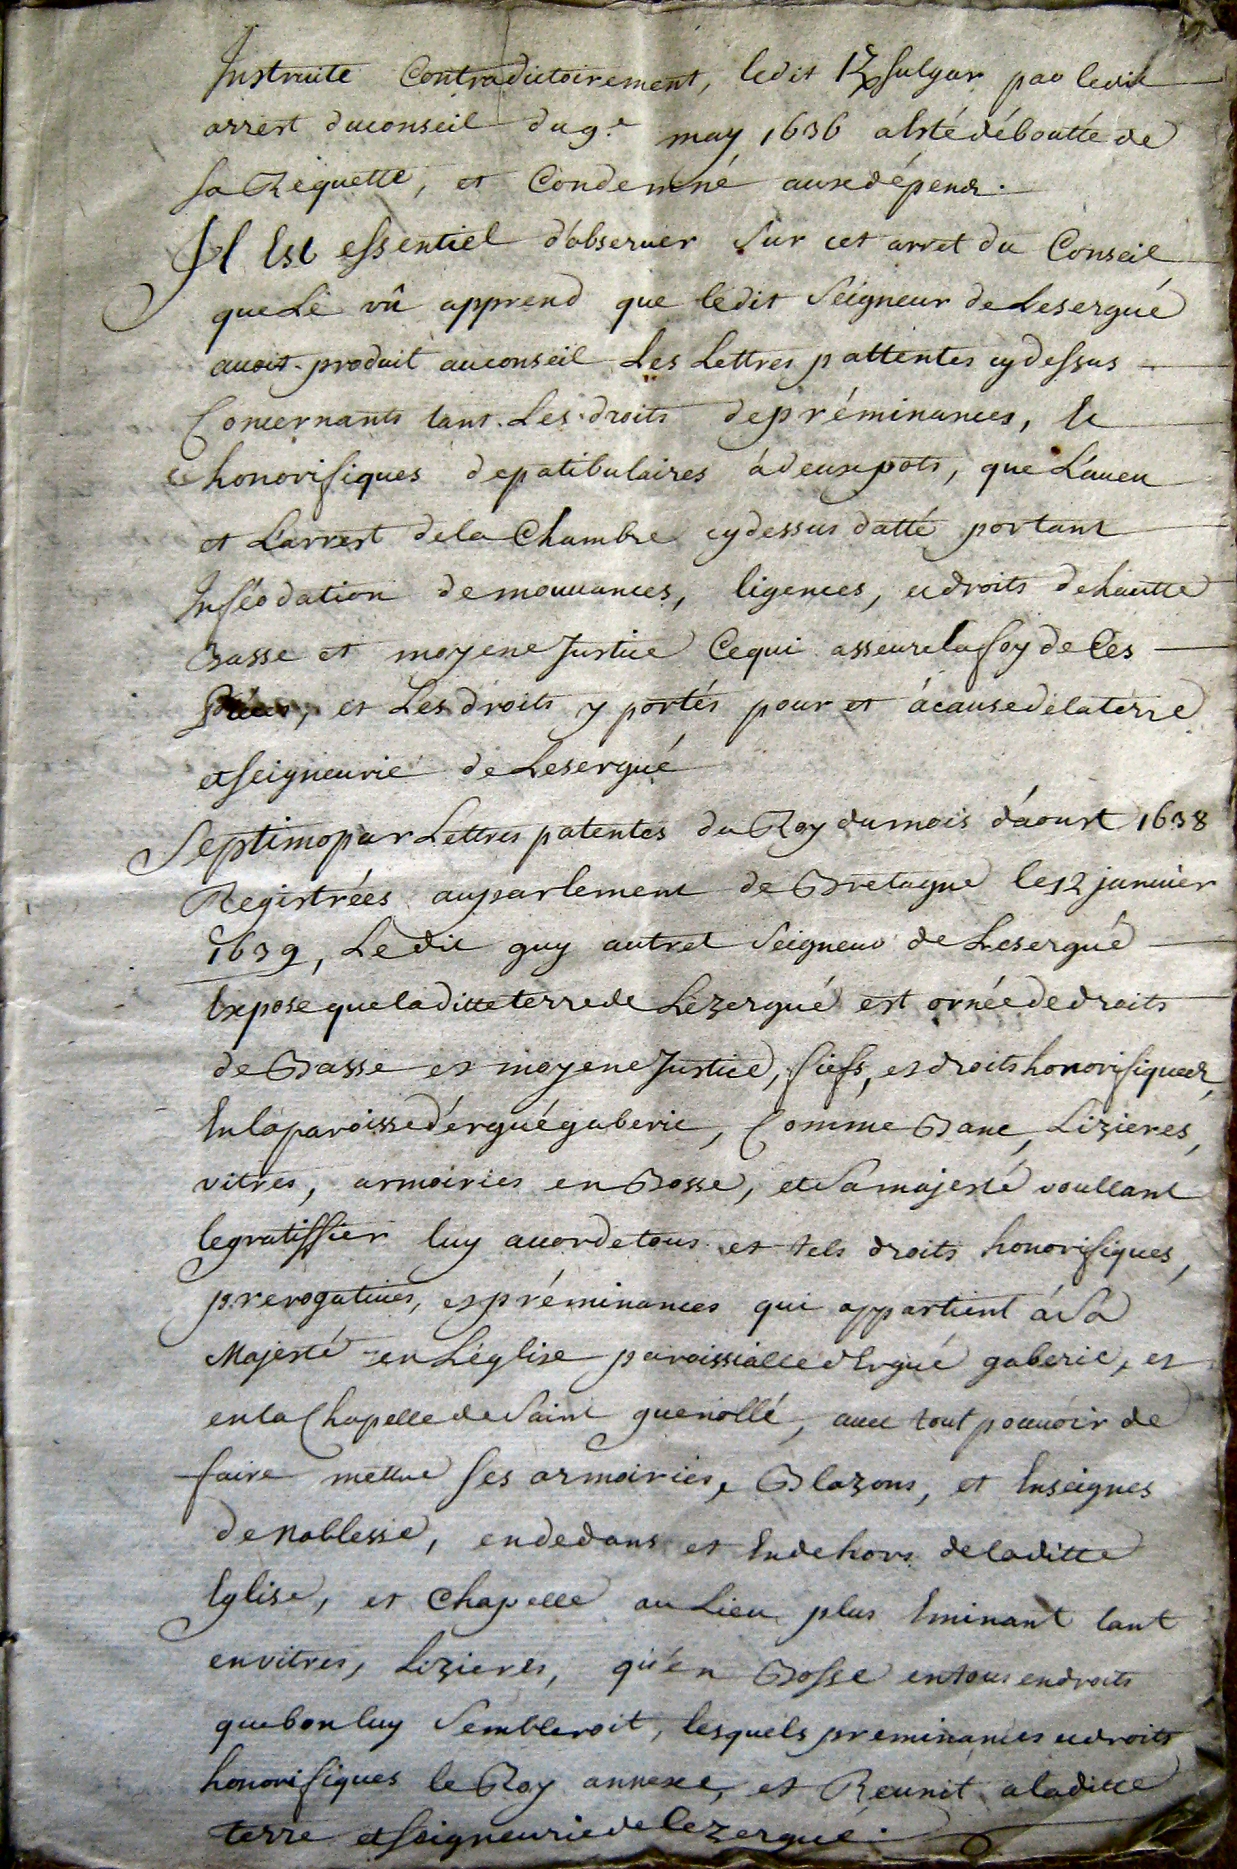 Instruite Contradictoirement, ledit fulgar par ledit
arrest duconseil du 9.e may 1636 a Esté déboutté de
sa Requette, et Condemné auxdépens.
Il Est essentiel d'observer sur cet arret du Conseil
que Le vû apprend que ledit Seigneur de Lesergué
auoit produit auconseil Les Lettres pattentes cydessus
Concernants tant Les droits depréminances, Et
honorifiques depatibulaires àdeuxpots, que L'aueu
et L'arrest dela Chambre cydessus datté portant
Inféodation demouuances, ligences, et droits dehautte
Basse et moyene Justice Cequi asseurelafoy de Ces
et Les droits y portés pour et àcausedelaterre
etseigneurie de Lesergué
Septimo par Lettres patentes du Roy dumois d'aoust 1638
Registrées auparlement de Bretagne le 12 januier
1639, Le dit guy autret Seigneur de Lesergué
Expose queladitteterrede Lézergué est ornéededroits
de Basse et moyene Justice, fiefs, et droitshonorifiques,
Enlaparoissed'érguégaberic, Comme Banc, Lizieres,
vitres, armoiries en Bosse, et Samajesté voullant
legratiffier luy accordetous et tels droits honorifiques,
prerogatiues, et préminances qui appartient à Sa
Majesté en L'église paroissialle d'Ergué gaberic, et
enla Chapelle de Saint guenollé, auec tout pouuoir de
faire mettre ses armoiries, Blazons, et Enseignes
de Noblesse, endedans et Endehors deladitte
Eglise, et Chapelle au Lieu plus Eminant tant
envitres, Lizieres, qu'en Bosse entous endroits
quebonluy Sembleroit, lesquels preminances et droits
honorifiques le Roy annexe, et Reunit aladitte
terre etseigneuriede lezergué.